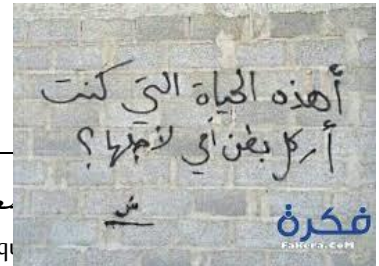 أهذه الحياة التي كنت
أركل بطن أمي لأجلها ؟
ش
فكرة
FaKera.CoM